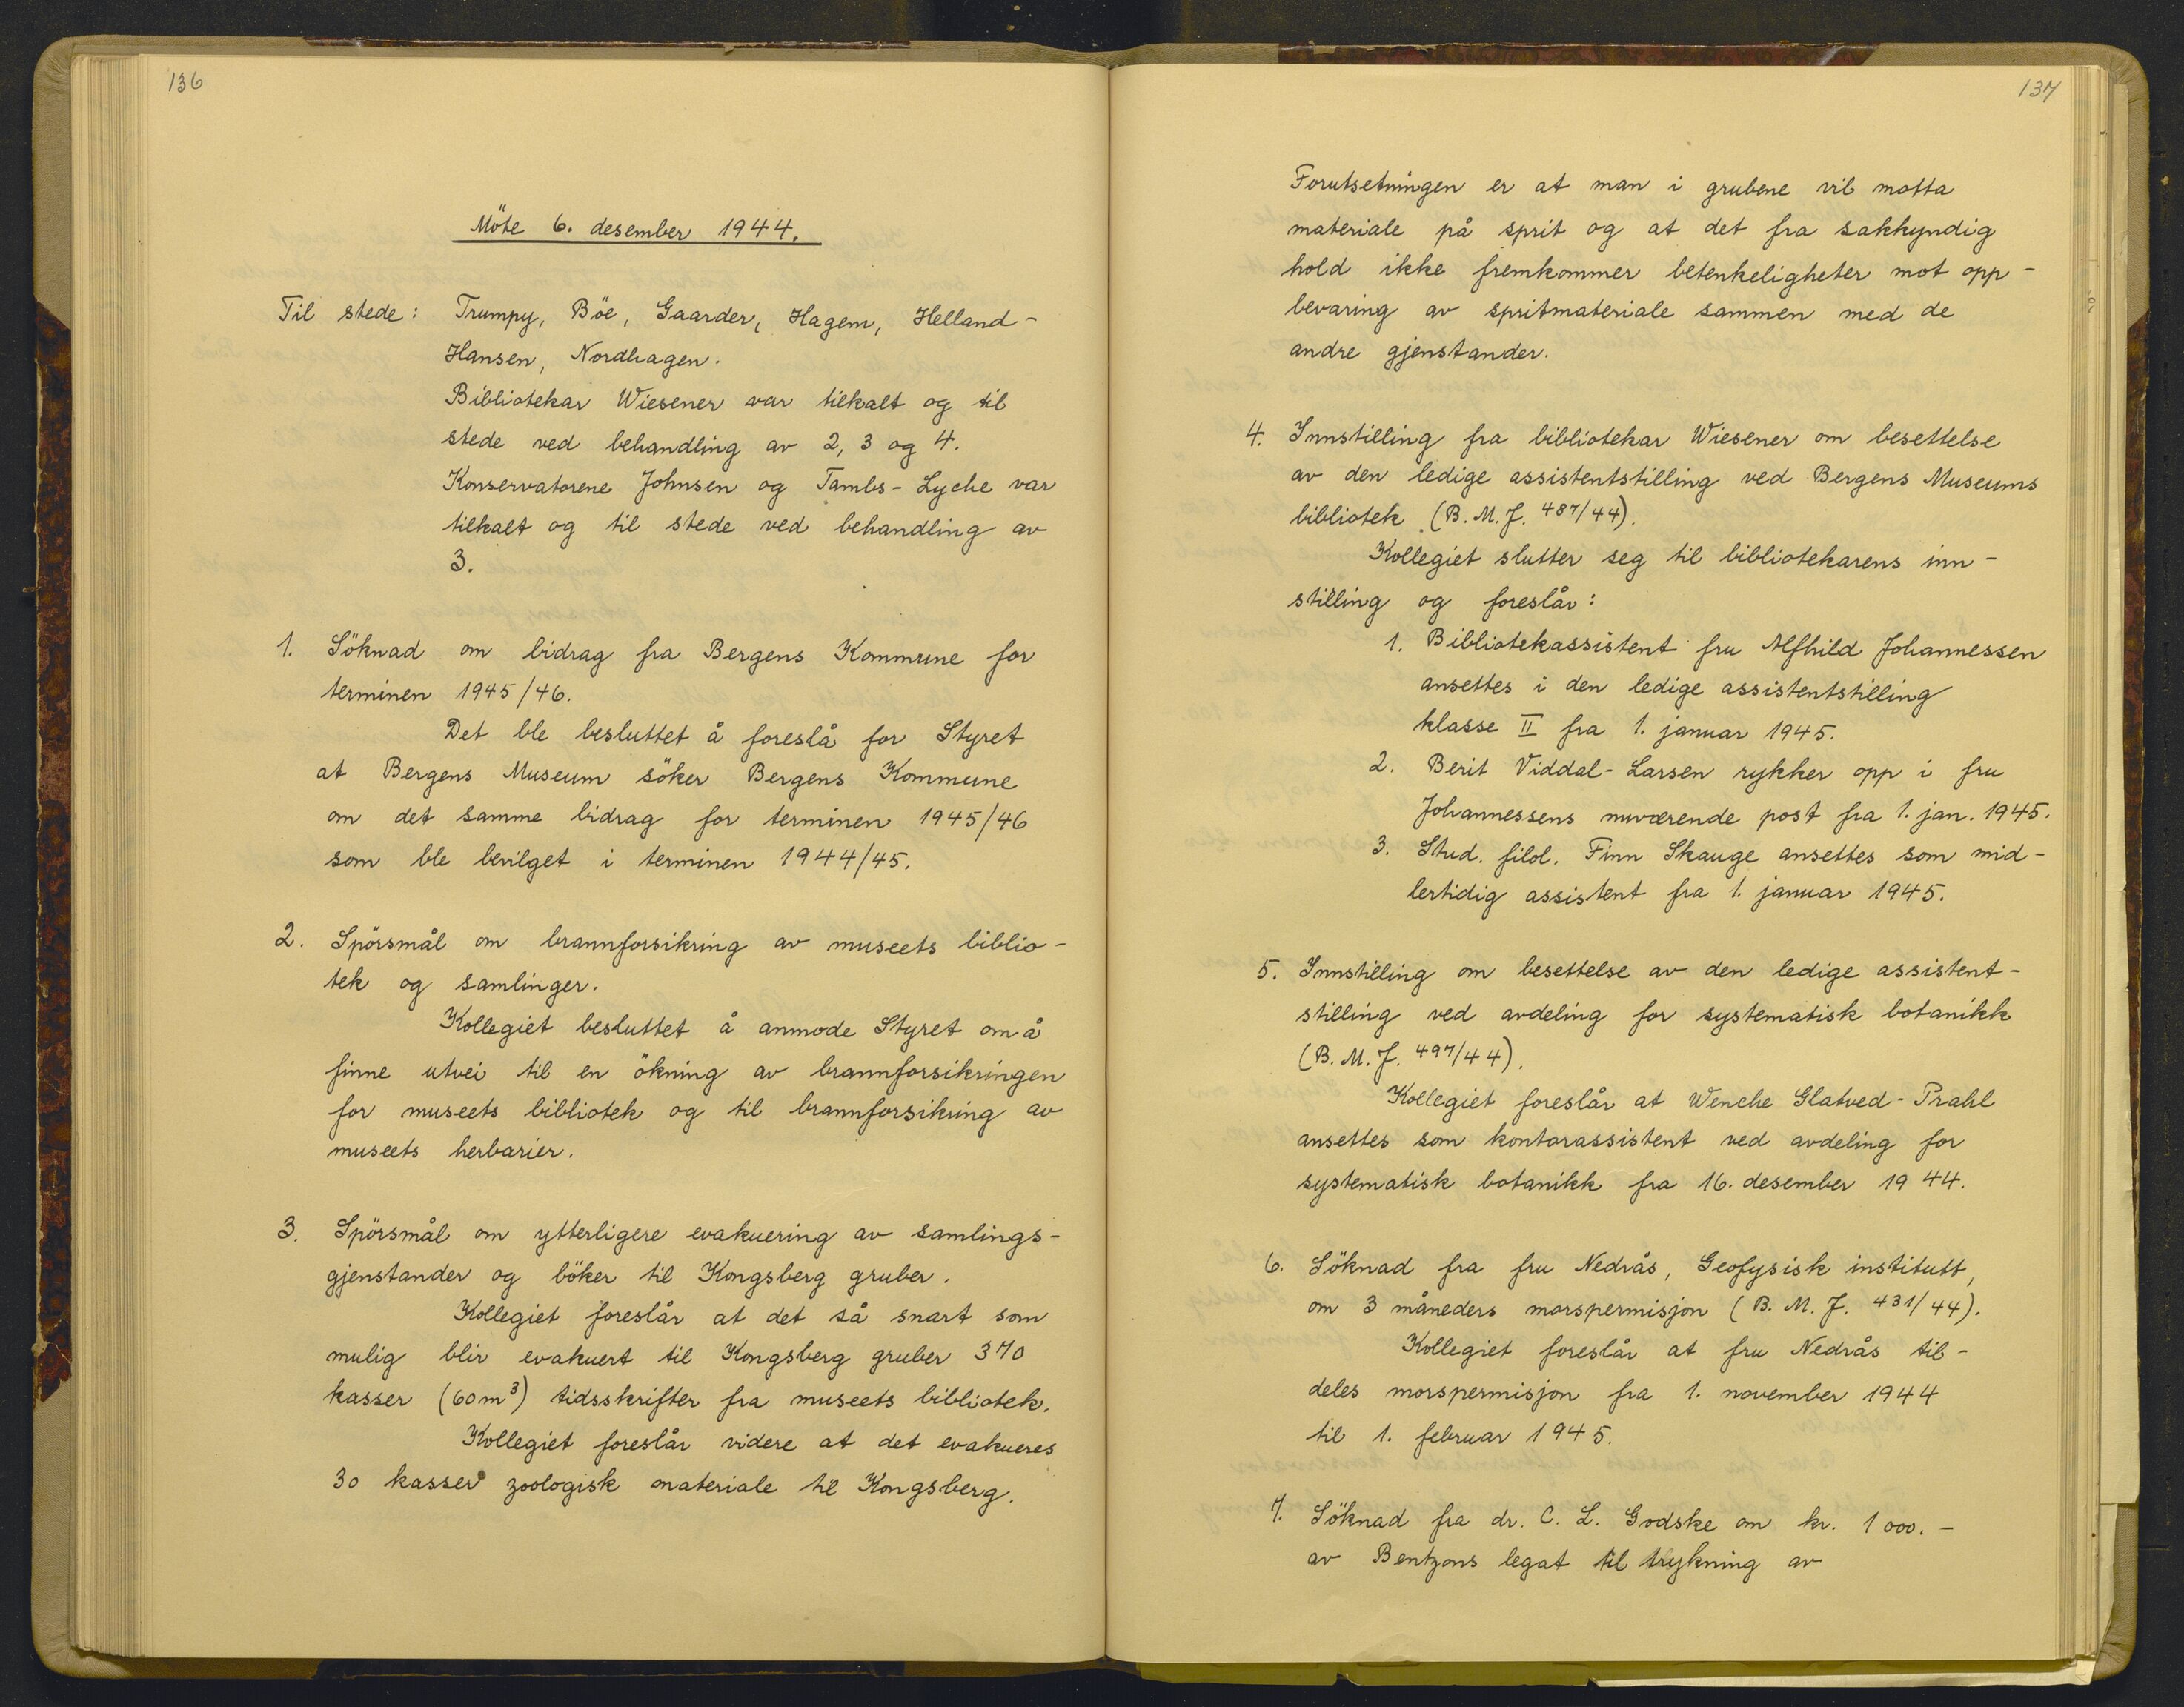 136
Möte 6. desember 1944.
Til stede: Trumpy, Böe, Gaarder, Hagem, Helland-
Hansen, Nordhagen.
Bibliotekar Wiesener var tilkalt og til
stede ved behandling av 2, 3 og 4.
Konservatorene Johnsen og Tambs-Lyche var
tilkalt og til stede ved behandling av
3.
1. Söknad om bidrag fra Bergens Kommune for
terminen 1945/46.
Det ble besluttet å foreslå for Styret
at Bergens Museum söker Bergens Kommune
om det samme bidrag for terminen 1945/46
som ble bevilget i terminen 1944/45.
2. Spörsmål om brannforsikring av museets biblio-
tek og samlinger.
Kollegiet besluttet å anmode Styret om å
finne utvei til en ökning av brannforsikringen
for museets bibliotek og til brannforsikring av
museets herbarier.
3. Spörsmål om ytterligere evakuering av samlings-
gjenstander og böker til Kongsberg gruber.
Kollegiet foreslår at det så snart som
mulig blir evakuert til Kongsberg gruber 370
kasser (60m³) tidsskrifter fra museets bibliotek.
Kollegiet foreslår videre at det evakueres
30 kasser zoologisk materiale til Kongsberg.
137
Forutsetningen er at man i grubene vil motta
materiale på sprit og at det fra sakkyndig
hold ikke fremkommer betenkeligheter mot opp-
bevaring av spritmateriale sammen med de
andre gjenstander.
4. Innstilling fra bibliotekar Wiesener om besettelse
av den ledige assistentstilling ved Bergens Museums
bibliotek (B.M.J. 487/44).
Kollegiet slutter seg til bibliotekarens inn-
stilling og foreslår:
1. Bibliotekassistent fru Alfhild Johannessen
ansettes i den ledige assistentstilling
klasse II fra 1. januar 1945.
2. Berit Viddal-Larsen rykker opp i fru
Johannessens nuværende post fra 1. jan. 1945.
3. Stud. filol. Finn Skauge ansettes som mid-
lertidig assistent fra 1. januar 1945.
5. Innstilling om besettelse av den ledige assistent-
stilling ved avdeling for systematisk botanikk
(B.M.J. 497/44).
Kollegiet foreslår at Wenche Glatved-Prahl
ansettes som kontorassistent ved avdeling for
systematisk botanikk fra 16. desember 1944.
6. Söknad fra fru Nedrås, Geofysisk institutt,
om 3 måneders morspermisjon (B.M.J. 431/44).
Kollegiet foreslår at fru Nedrås til-
deles morspermisjon fra 1. november 1944
til 1. februar 1945.
7. Söknad fra dr. C. L. Godske om kr. 1000.-
av Bentzons legat til trykning av